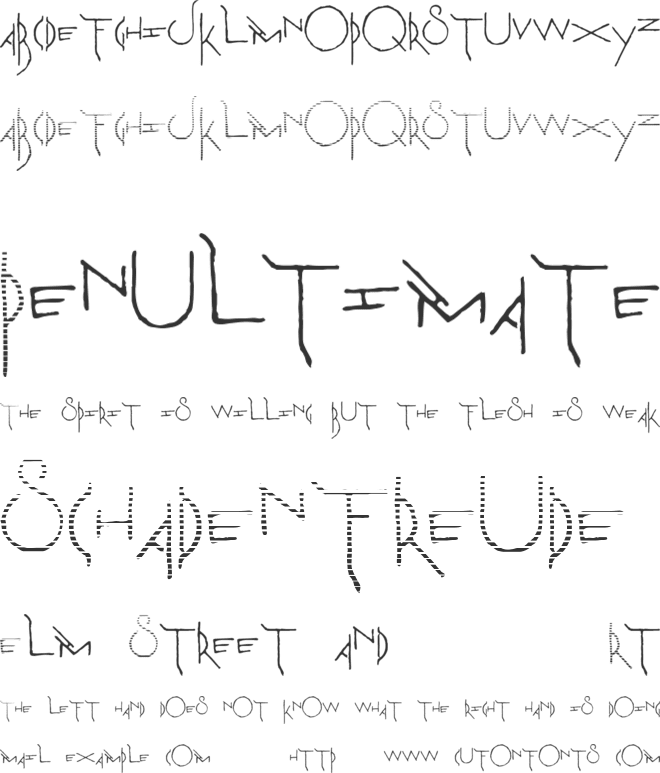 ABCDEFGHIJKLMNOPQRSTUVWXYZ
ABCDEFGHIJKLMNOPQRSTUVWXYZ
PENULTIMATE
THE SPIRIT IS WILLING BUT THE FLESH IS WEAK
SCHADENFREUDE
ELM STREET AND RT
THE LEFT HAND DOES NOT KNOW WHAT THE RIGHT HAND IS DOING
MAIL EXAMPLE COM HTTP WWW CUTONFONTS COM